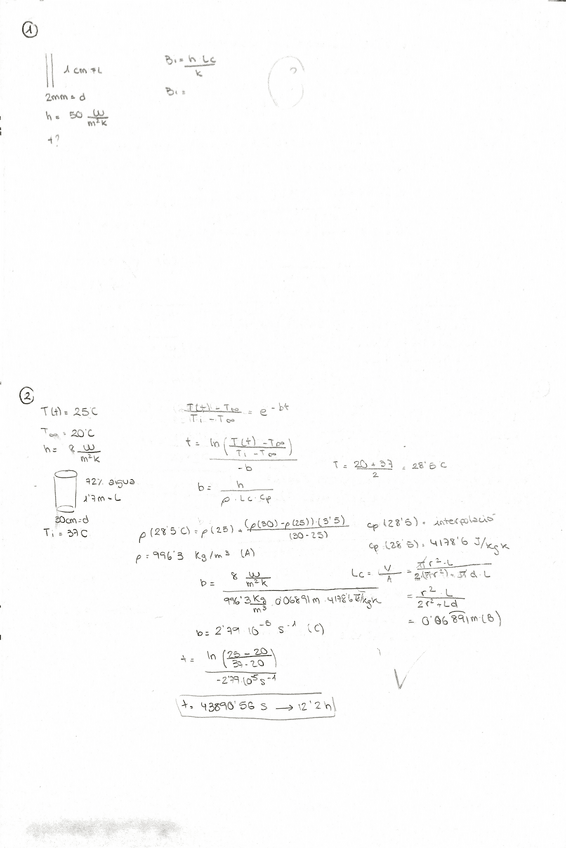 ①
1 cm = L
2mm = d
h = 50 W/m²k
t?
Bi = h Lc / k
Bi =
?
②
T(t) = 25 C
T∞ = 20°C
h = 8 W/m²k
72% aigua
1'7m = L
30cm = d
Ti = 37 C
T(t) - T∞ / Ti - T∞ = e^-bt
t = ln(T(t) - T∞ / Ti - T∞) / -b
b = h / ρ · Lc · Cp
T = 20 + 37 / 2 = 28'5 C
ρ(28'5 C) = ρ(25) + (ρ(30) - ρ(25)) (3'5) / (30 - 25)
ρ = 996'3 kg/m³ (A)
cp (28'5) = interpolació
cp (28'5) = 4178'6 J/kg k
b = 8 W/m²k / 996'3 kg/m³ 0'06891m · 4178'6 J/kg k
Lc = V/A = πr² · L / 2(πr²) + πd · L
= r² L / 2r² + Ld
= 0'06891m (B)
b = 2'79 10^-5 s^-1 (C)
t = ln(25 - 20 / 37 - 20) / -2'79 · 10^-5 s^-1
t = 43890'56 s → 12'2 h